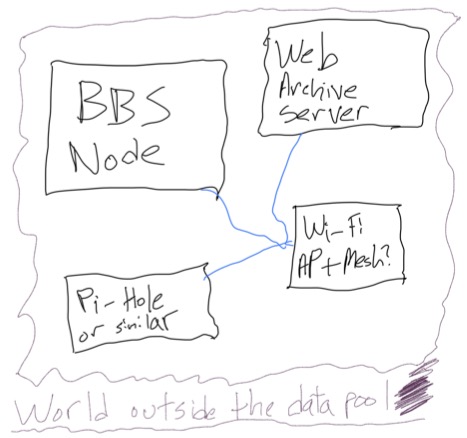 BBS
Node
Web
Archive
Server
Wi-Fi
AP+Mesh?
Pi-Hole
or similar
World outside the data pool